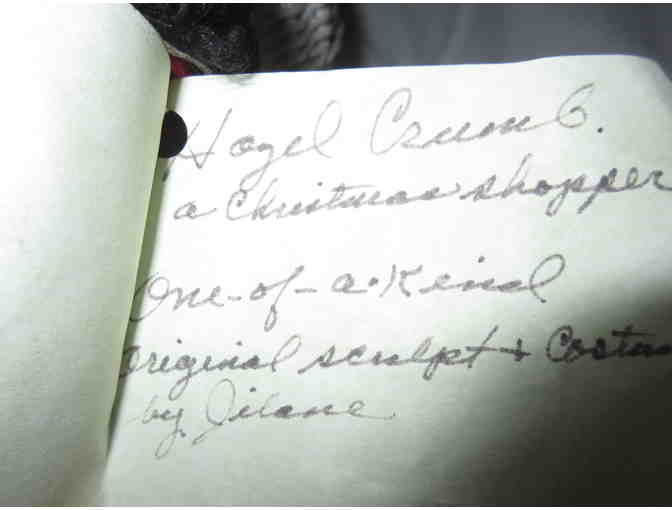 Hazel Crumb.
a Christmas shopper
One-of-a-Kind
Original sculpt + Costum
by Jilane